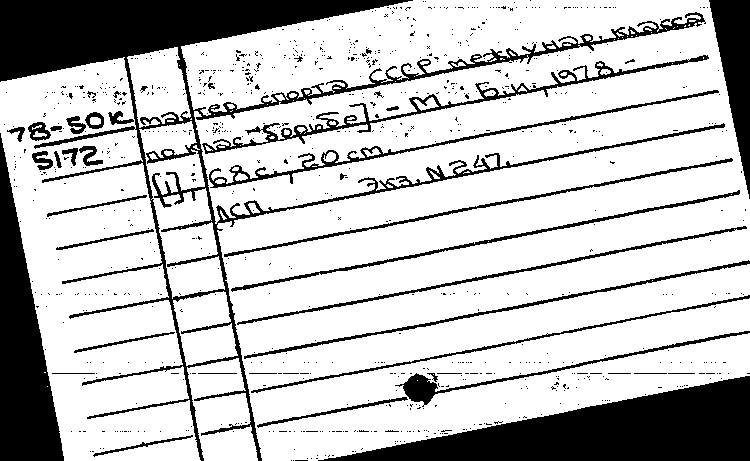 78-50к
5172
мастер спорта СССР междунар. класса
по клас. борьбе]. - М. : Б.и., 1978.-
[1], 68 с. ; 20 см.
ДСП. Экз. N 247.